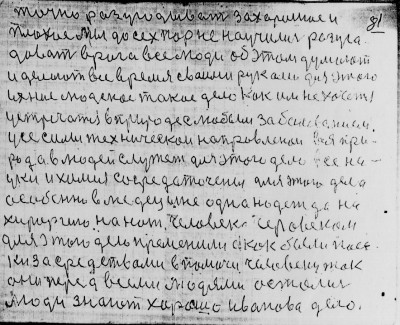 81
точно разугодивают захаромое и
плохое мы до сех пор не научилис разуга
доват врага все люди об этом думают
и делают все время своими руками для этого
ихнее людское такое дело как им не хочется
встречатся в природе с любым заболеванием.
усе сили технической направленои вся при-
рода в людей служет для этого дело усе на-
уки и химия сосредаточени для этого дела
особенно в медецуне одна надежда на
хирургию на нож. Человек человеком
для этого дело применили как были пос-
ки за средствами в помочи человеку как
они перед всеми людями осталис
люди знают хорошо иванова дело.